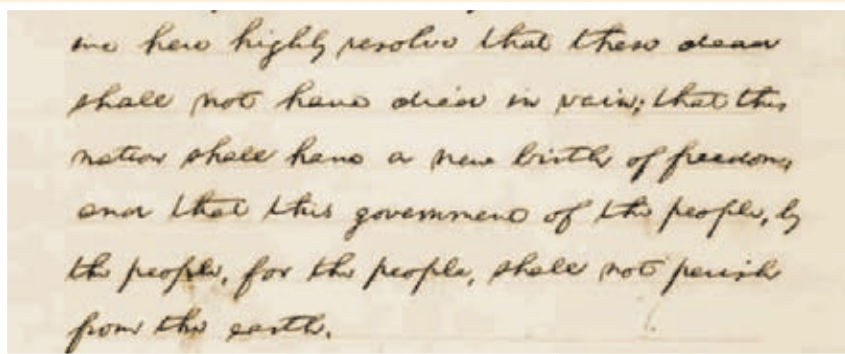 we here highly resolve that these dead
shall not have died in vain; that this
nation shall have a new birth of freedom,
and that this government of the people, by
the people, for the people, shall not perish
from the earth.